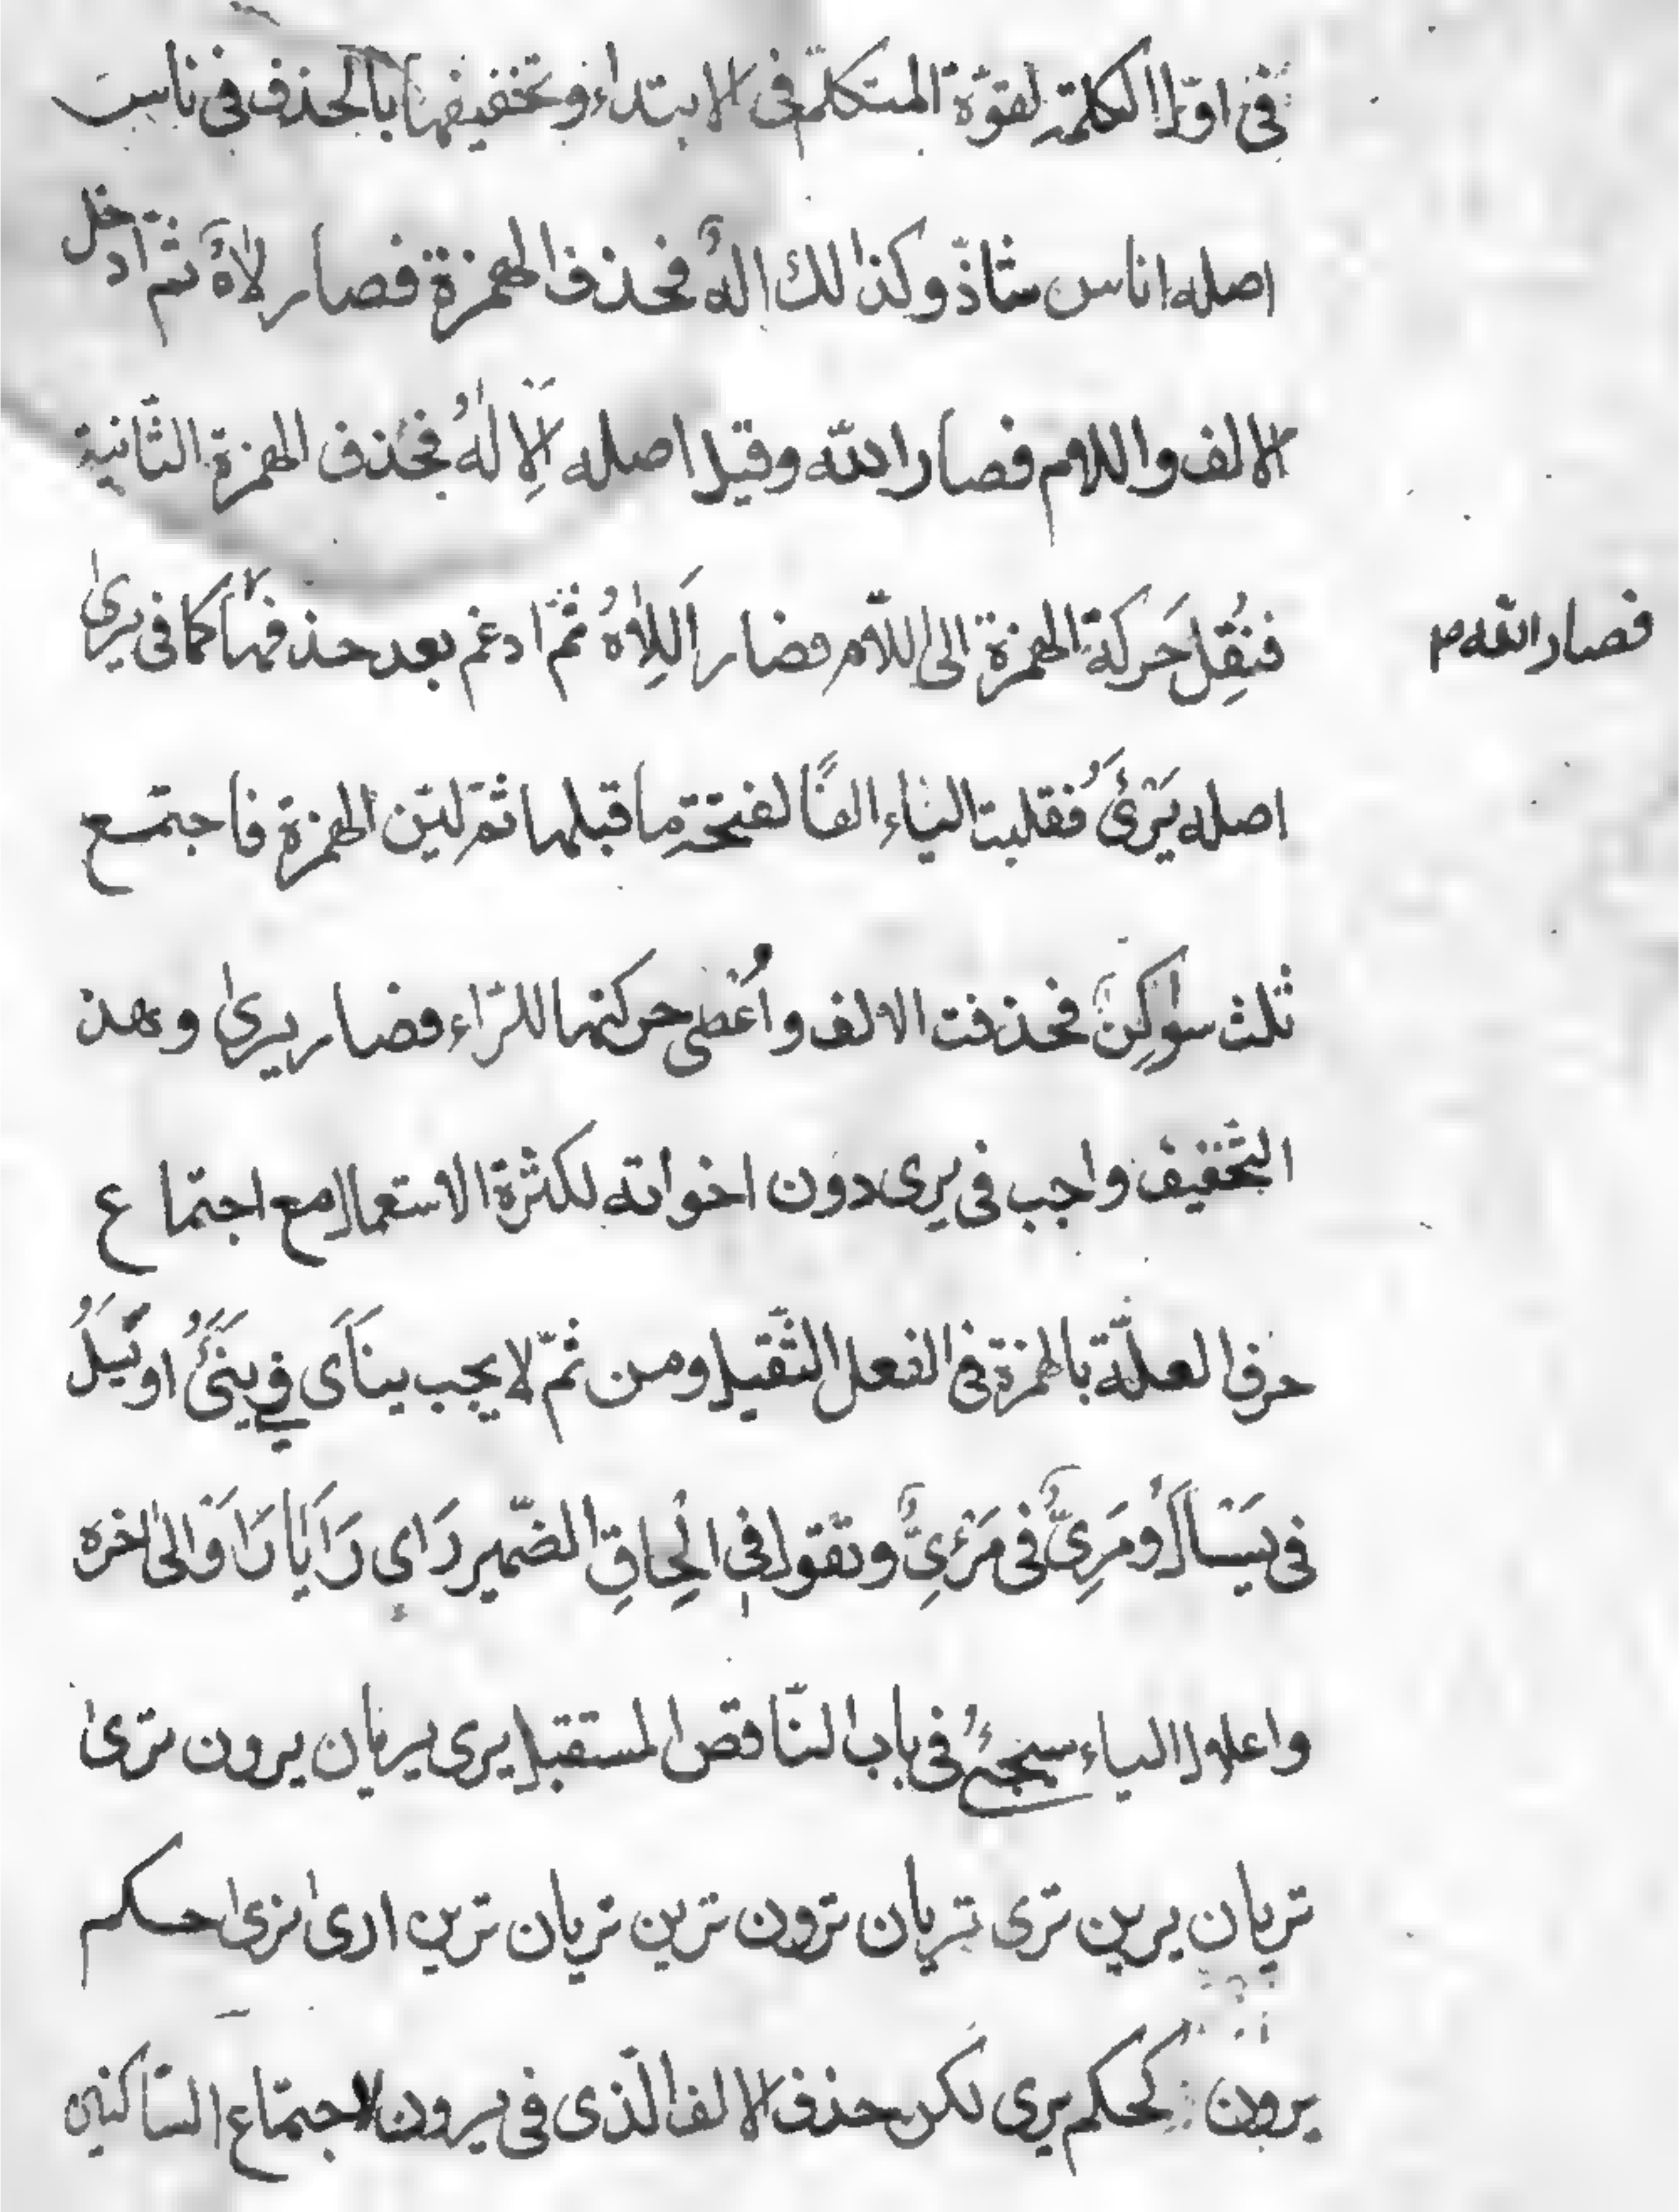 فى اوّل الكلمة لقوّة المتكلّم فى الابتداء وتخفيفها بالحذف فى ناس
اصله اناس شاذّ وكذالك الهٌ فحذف الهمزة فصار لاهٌ ثم ادخل
الالف واللام فصار الله وقيل اصله اَلْاِلٰهُ فحُذف الهمزة الثّانية
فنُقِل حَركة الهمزة الى اللّام فصار اَلِلٰاهُ ثمّ ادغم بعد حذفها كما فى يرىٰ
فصار الله م
اصله يَرْئَىُ فقلبت الياء الفًا لفتحة ما قبلها ثمّ ليّن الهمزة فاجتمع
ثلث سواكِنٌ فحذفت الالف واُعْطى حركتها للرّاء فصار يرىٰ وهذ
التّخفيف واجب فى يرى دون اخواته لكثرة الاستعمال مع اجتماع
حرف العلّة بالهمزة فى الفعل الثّقيل ومن ثمّ لا يجب يناَى فى يَنْئَىُ او يَسَلُ
فى يَسْاَلُ ومَرِىٌّ فى مَرْءِىٌّ وتقول فى اِلْحاقِ الضّمير رَاى رَاَيَا رَاَوْا الىٰ اخره
واعلال الياء سيجئُ فى باب النّاقص المستقبل يرى يريان يرون ترىٰ
تريان يرين ترى تريان ترون ترين تريان ترين ارىٰ نرىٰ حكم
يرون كحكم يرى لكن حذف الالف الّذى فى يرون لاجتماع السّاكنين